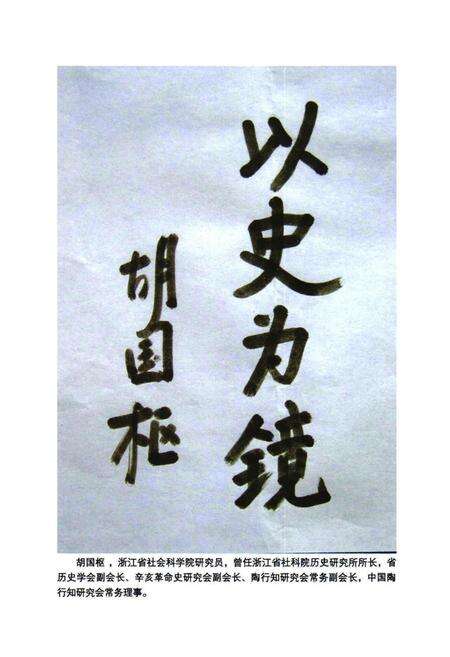 以史为镜
胡国枢
胡国枢，浙江省社会科学院研究员，曾任浙江省社科院历史研究所所长，省
历史学会副会长、辛亥革命史研究会副会长、陶行知研究会常务副会长，中国陶
行知研究会常务理事。